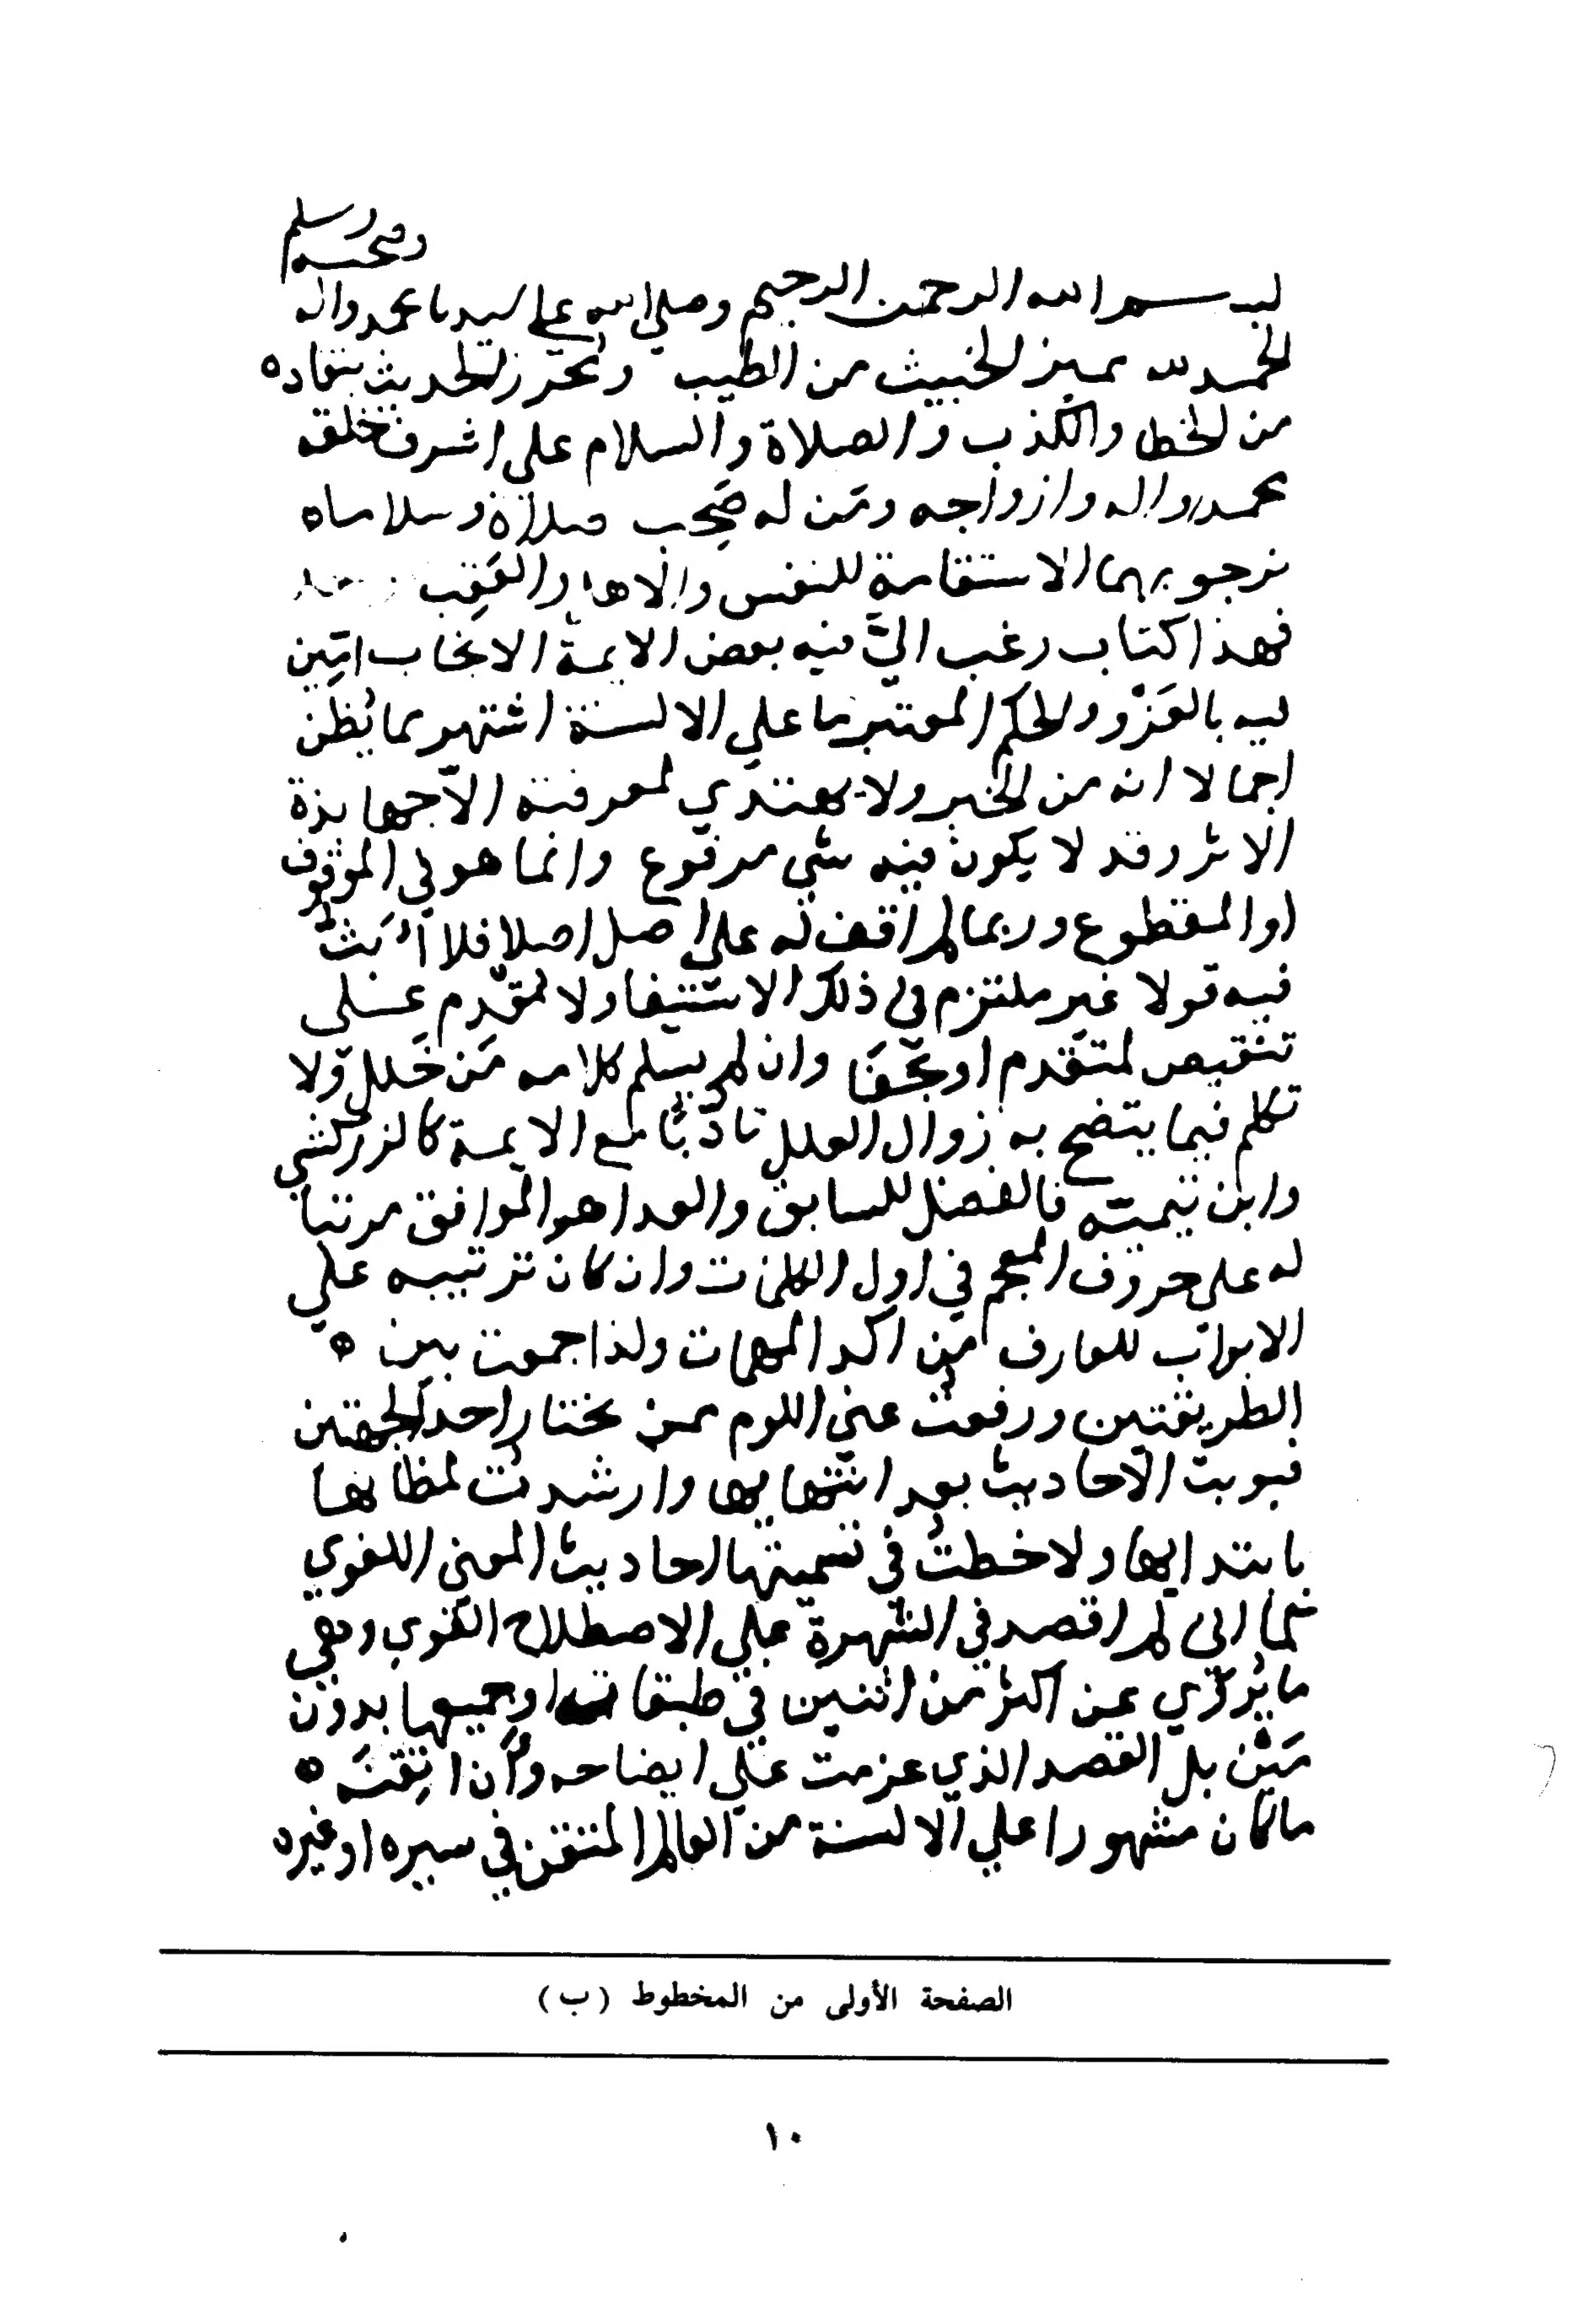 بسم الله الرحمن الرحيم وصلي الله علي سيدنا محمد واله
وصحبه وسلم
الحمد لله مميز الخبيث من الطيب ومحرز الحديث بنقاده
من الخطا والكذب والصلاة والسلام على اشرف خلقه
محمد واله وازواجه ومَن له صَحِب صلاة وسلاما
نرجو بهما الاستقامة للنفس والاهل والعَقِب
فهذا كتاب رغب اليّ فيه بعض الايمة الانجاب ابيّن
فيه بالعَزْو والحكم المعتبر ما علي الالسنة اشتهر مما يُظن
اجمالا انه من الخبر ولا يهتدي لمعرفته الا جهابذة
الاثر وقد لا يكون فيه شي مرفوع وانما هو في الموقوف
او المقطوع وربما لم اقف له علي اصل اصلا فلا أبُثُّ
فيه قولا غير ملتزم في ذلك الاستيفا ولا مقدم على
تنقيص لمتقدم او بجفا وان لم يسلم كلامه من خَلل ولا
تكلم فيما يتضح به زوال العلل تادّبًا مع الايمة كالزركشي
وابن تيمية فالفضل للسابق والعدل هو الموافق مرتبا
له على حروف المعجم في اول الكلمات وان كان ترتيبه علي
الابواب للعارف من اكد المهمات ولذا جمعت بين ه
الطريقتين ورفعت عني اللوم ممن يختار احد الجهتين
فبوبت الاحاديث بعد انتهايها وارشدت لمظانها
بابتدايها ولاحظتُ في تسميتها احاديث المعني اللغوي
كما اني لم اقصد في الشهرة علي الاصطلاح القوي وهي
ما يُروي عن اكثر من اثنين في طبقاته او جميعها بدون
مَيْن بل القصد الذي عزمت علي ايضاحه وأن اتقنه ه
ما كان مشهورا علي الالسنة من العالم المتقن في سيره او غيره
الصفحة الأولى من المخطوط (ب)
١٠